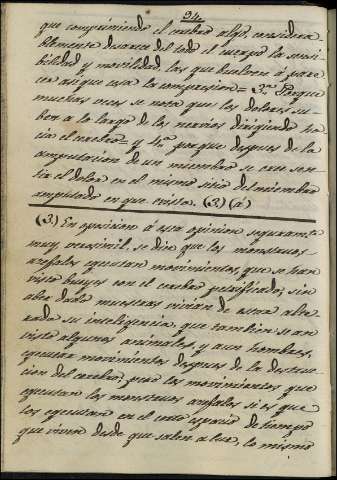 94.
que comprimiendo el cerebro algo, considera
blemente desaparece del todo el cuerpo la sensi
bilidad y movilidad, las que buelven á pare
cer asi que cesa la compresion = 3.º Porque
muchas veces se nota que los dolores su-
ben a lo largo de los nervios dirigiendo ha
cia el cerebro = y 4.º porque despues de la
amputacion de un miembro se cree sen-
tir el dolor en el mismo sitio del miembro
amputado en que existia. (3.) (a)
(3.) En oposicion á esta opinion seguramte
muy verosimil, se dice que los monstruos
acefalos ejecutan movimientos, que se han
visto bueyes con el cerebro petrificado, sin
haber dado muestras de tener alte-
rada su inteligencia, que tambien se an
visto algunos animales, y aun hombres,
ejecutar movimientos despues de la destruc-
cion del cerebro; pero los movimientos que
ejecutan los monstruos acefalos si es que
los ejecutan en el corto espacio de tiempo
que viven desde que salen a luz, lo mismo